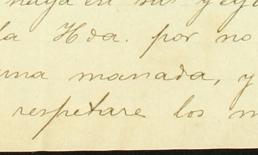 haya en sus y ej
la Hda. por no
una manada, y
respetare los m